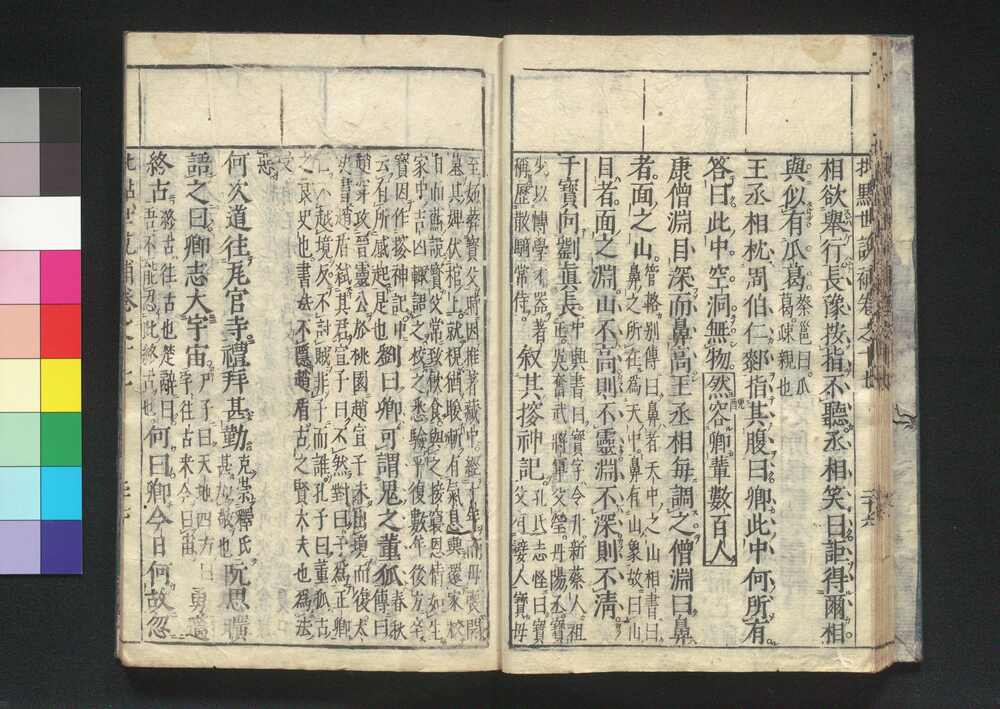 批點世說補卷之十七
相欲舉行長豫按指不聽丞相笑曰詎得爾相
與似有瓜葛蔡邕曰瓜葛疎親也
王丞相枕周伯仁䣛指其腹曰卿此中何所有
答曰此中空洞無物然容卿輩數百人
康僧淵目深而鼻高王丞相每調之僧淵曰鼻
者面之山管輅別傳曰鼻者天中之山相書曰鼻之所在為天中鼻有山象故曰山
目者面之淵山不高則不靈淵不深則不清
干寶向劉真長中興書曰寶字令升新蔡人祖正吳奮武將軍父瑩丹陽丞寶
少以博學才器著稱歷散騎常侍叙其搜神記孔氏志怪曰寶父有嬖人寶母
至妬葬寶父時因推著藏中經十年而母喪開
墓其婢伏棺上就視猶暖漸有氣息輿還家終
日而蘇說寶父常致飲食與之接寢恩情如生
家中吉凶輒語之校之悉驗平復數年後方卒
寶因作搜神記中
云有所感起是也劉曰卿可謂鬼之董狐春秋傳曰
趙穿攻晉靈公於桃園趙宣子未出境而復太
史書趙盾弑其君宣子曰不然對曰子為正卿
亡不越境反不討賊非子而誰孔子曰董狐古
之良史也書法不隱趙盾古之賢大夫也為法
受惡
何次道往瓦官寺禮拜甚勤充崇釋氏甚加敬也阮思曠
語之曰卿志大宇宙尸子曰天地四方曰宇往古來今曰宙勇邁
終古終古往古也楚辭曰吾不能忍此終古也何曰卿今日何故忽